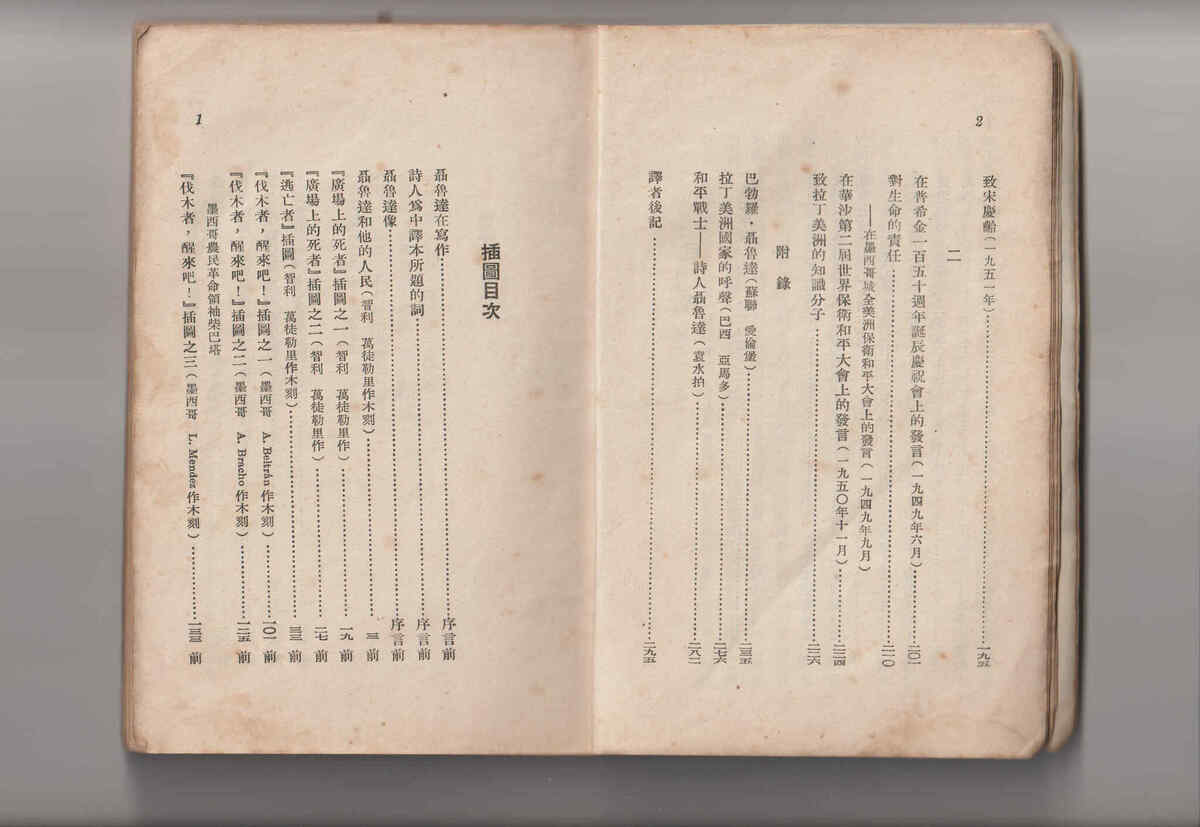 2
致宋慶齡（一九五一年）……一九五
二
在普希金一百五十週年誕辰慶祝會上的發言（一九四九年六月）……二〇一
對生命的責任……二一〇
——在墨西哥城全美洲保衛和平大會上的發言（一九四九年九月）
在華沙第二屆世界保衛和平大會上的發言（一九五〇年十一月）……二二四
致拉丁美洲的知識分子……二二六
附錄
巴勃羅·聶魯達（蘇聯 愛倫堡）……二三五
拉丁美洲國家的呼聲（巴西 亞馬多）……二七六
和平戰士——詩人聶魯達（袁水拍）……二八二
譯者後記……二九五
插圖目次
聶魯達在寫作……序言前
詩人爲中譯本所題的詞……序言前
聶魯達像……序言前
聶魯達和他的人民（智利 萬徒勒里作木刻）……三 前
『廣場上的死者』插圖之一（智利 萬徒勒里作）……一九 前
『廣場上的死者』插圖之二（智利 萬徒勒里作）……二七 前
『逃亡者』插圖（智利 萬徒勒里作木刻）……三三 前
『伐木者，醒來吧！』插圖之一（墨西哥 A. Beltrán 作木刻）……一〇一 前
『伐木者，醒來吧！』插圖之二（墨西哥 A. Bracho 作木刻）……一二五 前
墨西哥農民革命領袖柴巴塔
『伐木者，醒來吧！』插圖之三（墨西哥 L. Mendez 作木刻）……一三三 前
1